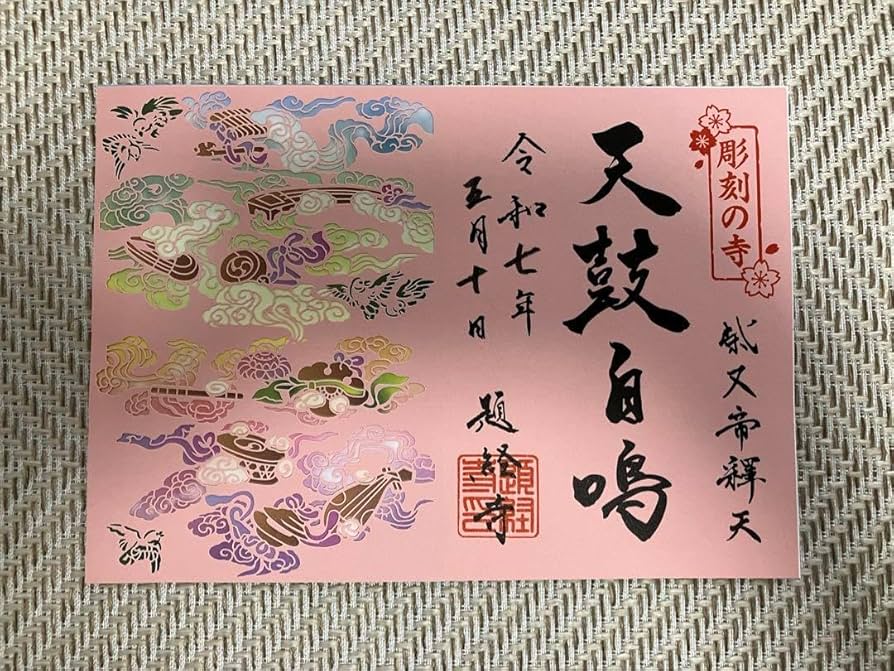 彫刻の寺
柴又帝釋天
天鼓自鳴
令和七年
五月十日
題経寺